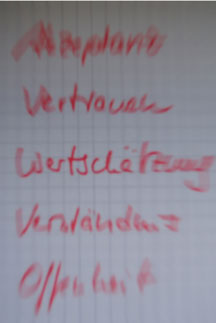 Akzeptanz
Vertrauen
Wertschätzung
Verständnis
Offenheit